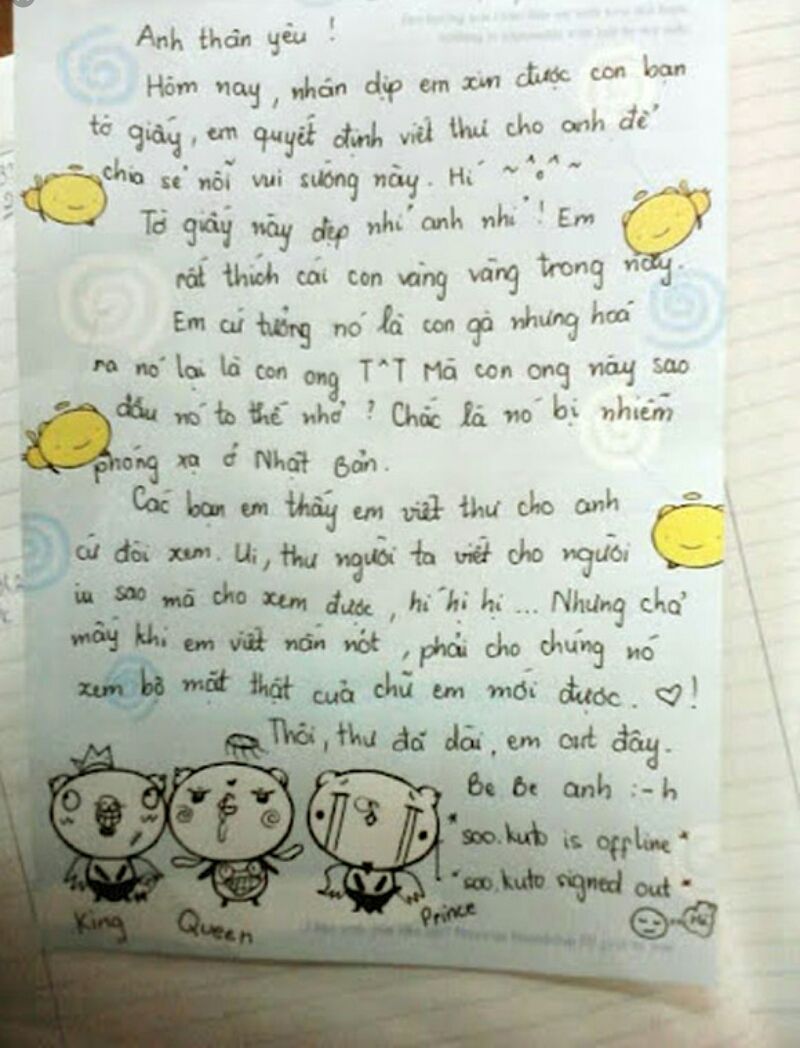 Anh thân yêu !
Hôm nay, nhân dịp em xin được con bạn
tờ giấy, em quyết định viết thư cho anh để
chia sẻ nỗi vui sướng này. Hí ~^o^~
Tờ giấy này đẹp nhỉ anh nhỉ ! Em
rất thích cái con vàng vàng trong này.
Em cứ tưởng nó là con gà nhưng hoá
ra nó lại là con ong T^T Mà con ong này sao
đầu nó to thế nhở ? Chắc là nó bị nhiễm
phóng xạ ở Nhật Bản.
Các bạn em thấy em viết thư cho anh
cứ đòi xem. Ui, thư người ta viết cho người
iu sao mà cho xem được, hí hị hị ... Nhưng chả
mấy khi em viết nắn nót, phải cho chúng nó
xem bộ mặt thật của chữ em mới được. ♡!
Thôi, thư đã dài, em out đây.
Be Be anh :-h
*soo.kuto is offline*
*soo.kuto signed out*
King
Queen
Prince